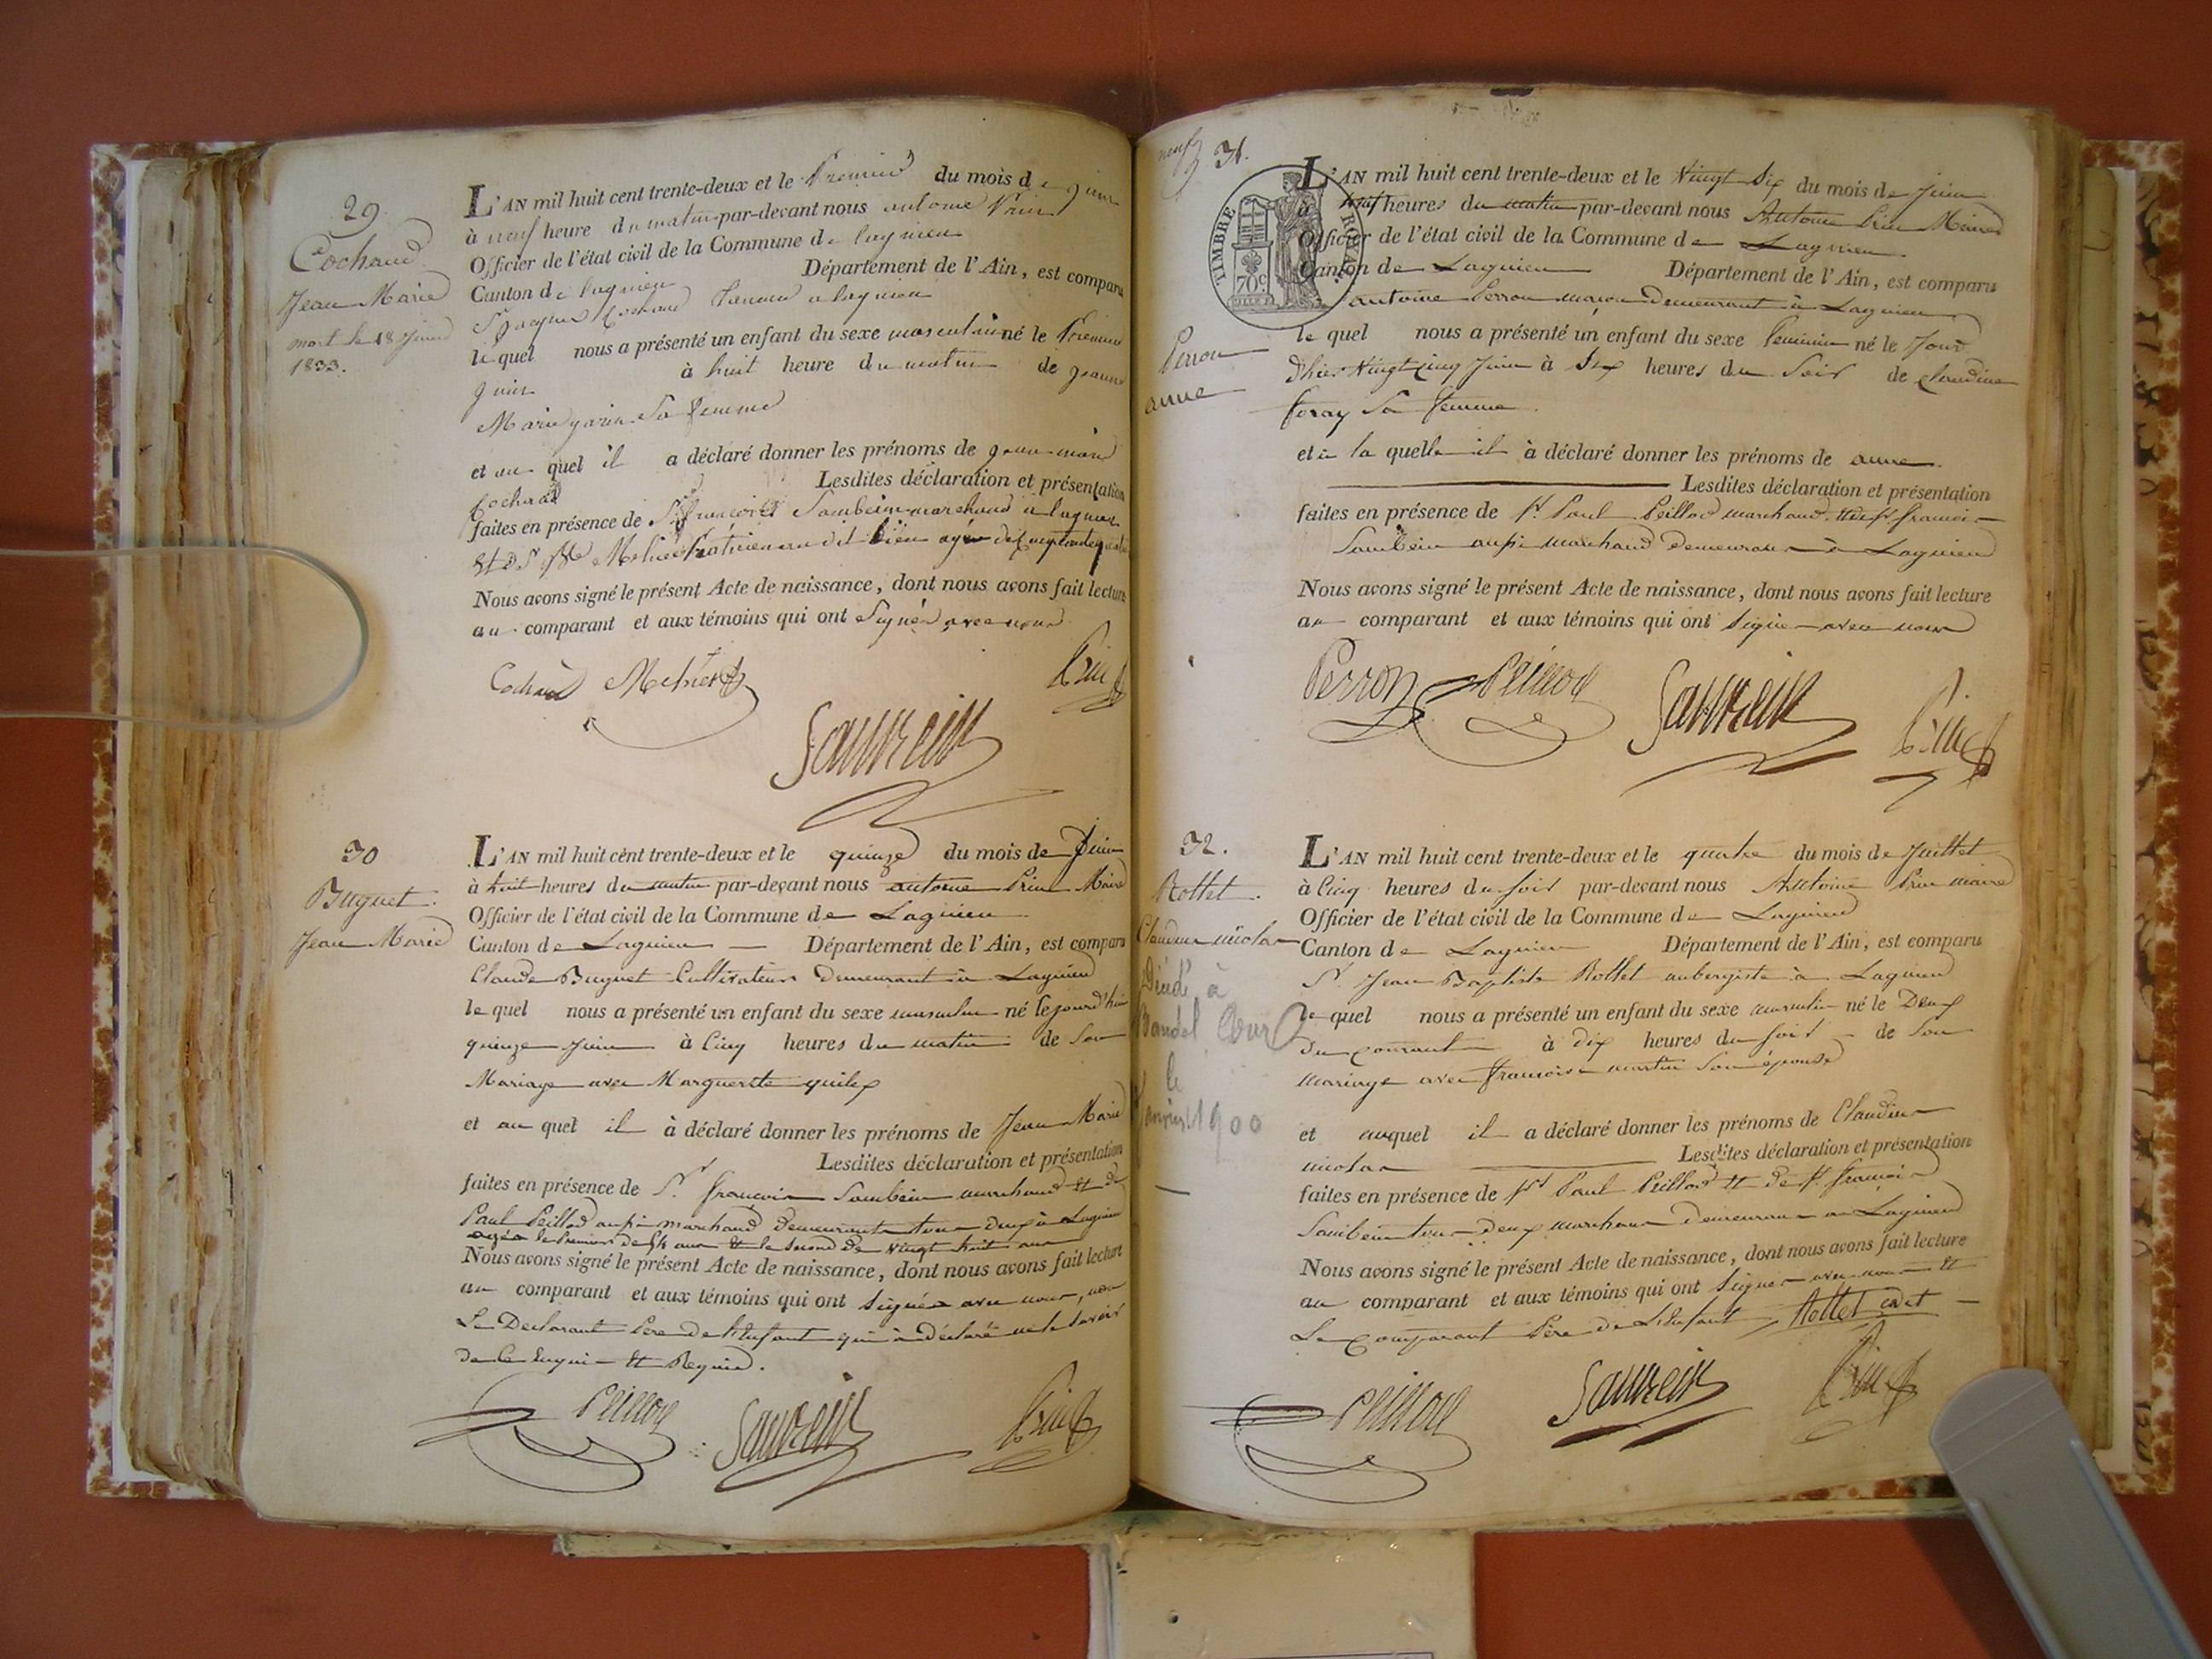 29.
Cochaud
Jean Marie
mort le 18 Juin
1833.
L'AN mil huit cent trente-deux et le Premier du mois de juin
à neuf heure du matin par-devant nous antoine Prin
Officier de l'état civil de la Commune de lagnieu
Canton de lagnieu Département de l'Ain, est comparu
Sr jacques Cochaud a lagnieu
le quel nous a présenté un enfant du sexe masculin né le Premier
juin à huit heure du matin de jeanne
Marie garin Sa femme
et au quel il a déclaré donner les prénoms de jean marie
Cochaud Lesdites déclaration et présentation
faites en présence de Sr francois Saimbein marchand à lagnieu
Nous avons signé le présent Acte de naissance, dont nous avons fait lecture
au comparant et aux témoins qui ont Signés avec nous
Cochaud
30
Buguet.
Jean Marie
L'AN mil huit cent trente-deux et le quinze du mois de Juin
à huit heures du matin par-devant nous antoine Prin Maire
Officier de l'état civil de la Commune de Lagnieu
Canton de Lagnieu Département de l'Ain, est comparu
Claude Buguet Cultivateur demeurant à Lagnieu
le quel nous a présenté un enfant du sexe masculin né lejourd'hui
quinze juin à Cinq heures du matin de Son
Mariage avec Marguerite
et au quel il à déclaré donner les prénoms de Jean Marie
Lesdites déclaration et présentation
faites en présence de Sr. francois Saimbein marchand et de
Paul Peillod aussi marchand demeurants tous deux à Lagnieu
agés le Premier de 54 ans et le Second de vingt huit ans
Nous avons signé le présent Acte de naissance, dont nous avons fait lecture
au comparant et aux témoins qui ont Signés avec nous, non
Le Declarant Pere de l'enfant qui à déclaré ne le Savoir
de Ce Enquis et Requis.
Peillod
31.
Perron
anne
TIMBRE ROYAL
70c
L'AN mil huit cent trente-deux et le Vingt Six du mois de Juin
à neuf heures du matin par-devant nous Antoine Prin Maire
Officier de l'état civil de la Commune de Lagnieu
Canton de Lagnieu Département de l'Ain, est comparu
antoine Perron maçon demeurant à Lagnieu
le quel nous a présenté un enfant du sexe feminin né le Jour
d'hier Vingt cinq Juin à Six heures du Soir de Claudine
foray Sa femme
et à la quelle il à déclaré donner les prénoms de anne.
Lesdites déclaration et présentation
faites en présence de Sr. Paul Peillod marchand et de Sr francois
Saimbein aussi marchand demeurans à Lagnieu
Nous avons signé le présent Acte de naissance, dont nous avons fait lecture
au comparant et aux témoins qui ont Signé avec nous
Perron Peillod
32.
Rottet.
Claudius nicolas
Décédé à
le
Janvier 1900
L'AN mil huit cent trente-deux et le quatre du mois de Juillet
à Cinq heures du soir par-devant nous Antoine Prin maire
Officier de l'état civil de la Commune de Lagnieu
Canton de Lagnieu Département de l'Ain, est comparu
Sr. Jean Baptiste Rottet aubergiste à Lagnieu
le quel nous a présenté un enfant du sexe masculin né le Deux
du courant à dix heures du soir de Son
mariage avec francoise martin Son épouse
et auquel il a déclaré donner les prénoms de Claudius
nicolas Lesdites déclaration et présentation
faites en présence de Srs Paul Peillod et de Sr. francois
Saimbein tous deux marchans demeurans à Lagnieu
Nous avons signé le présent Acte de naissance, dont nous avons fait lecture
au comparant et aux témoins qui ont Signer avec nous et
Le comparant Père de L'enfant Rottet cadet
Peillod